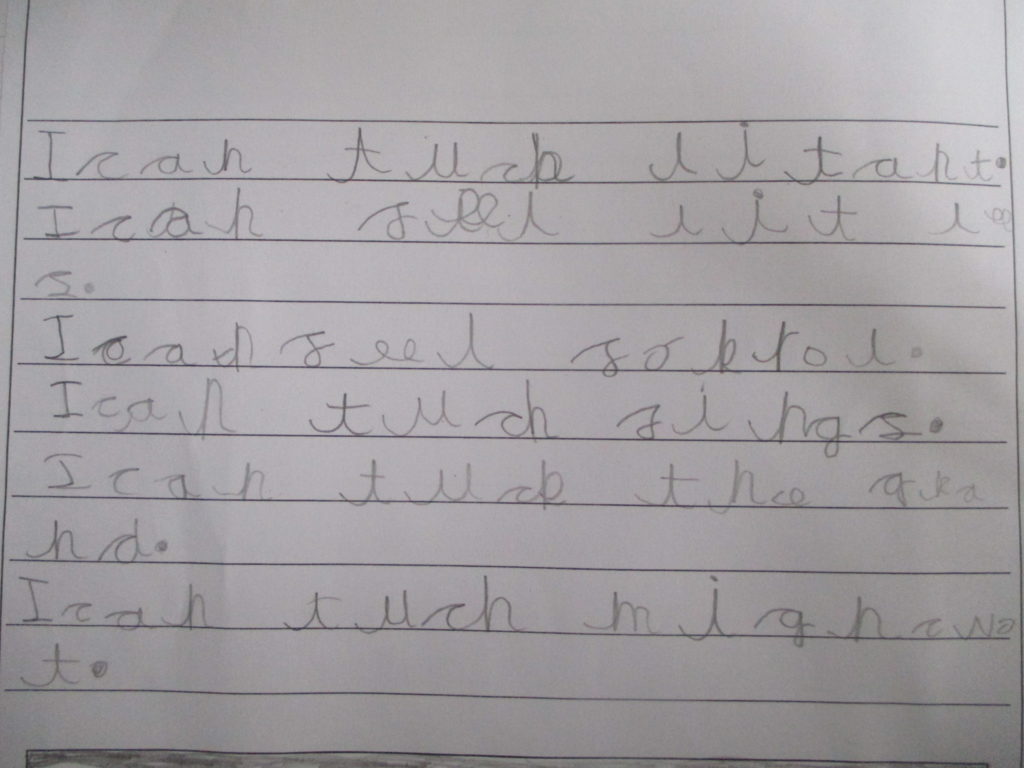 I can tuch litaht.
I cah seel lit lee
s.
I cah seel soktol.
I cah tuch sings.
I cah tuch the gra
nd.
I cah tuch mighcwe
t.